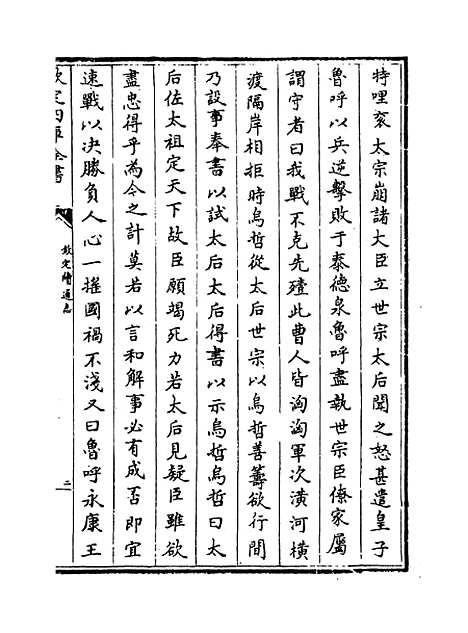 特哩衮太宗崩諸大臣立世宗太后聞之怒甚遣皇子
魯呼以兵逆擊敗于泰德泉魯呼盡執世宗臣僚家屬
謂守者曰我戰不克先殪此曹人皆洶洶軍次潢河橫
渡隔岸相拒時烏哲從太后世宗以烏哲善籌欲行間
乃設事奉書以試太后太后得書以示烏哲烏哲曰太
后佐太祖定天下故臣願竭死力若太后見疑臣雖欲
盡忠得乎為今之計莫若以言和解事必有成否即宜
速戰以决勝負人心一搖國禍不淺又曰魯呼永康王
欽定四庫全書
欽定續通志
二